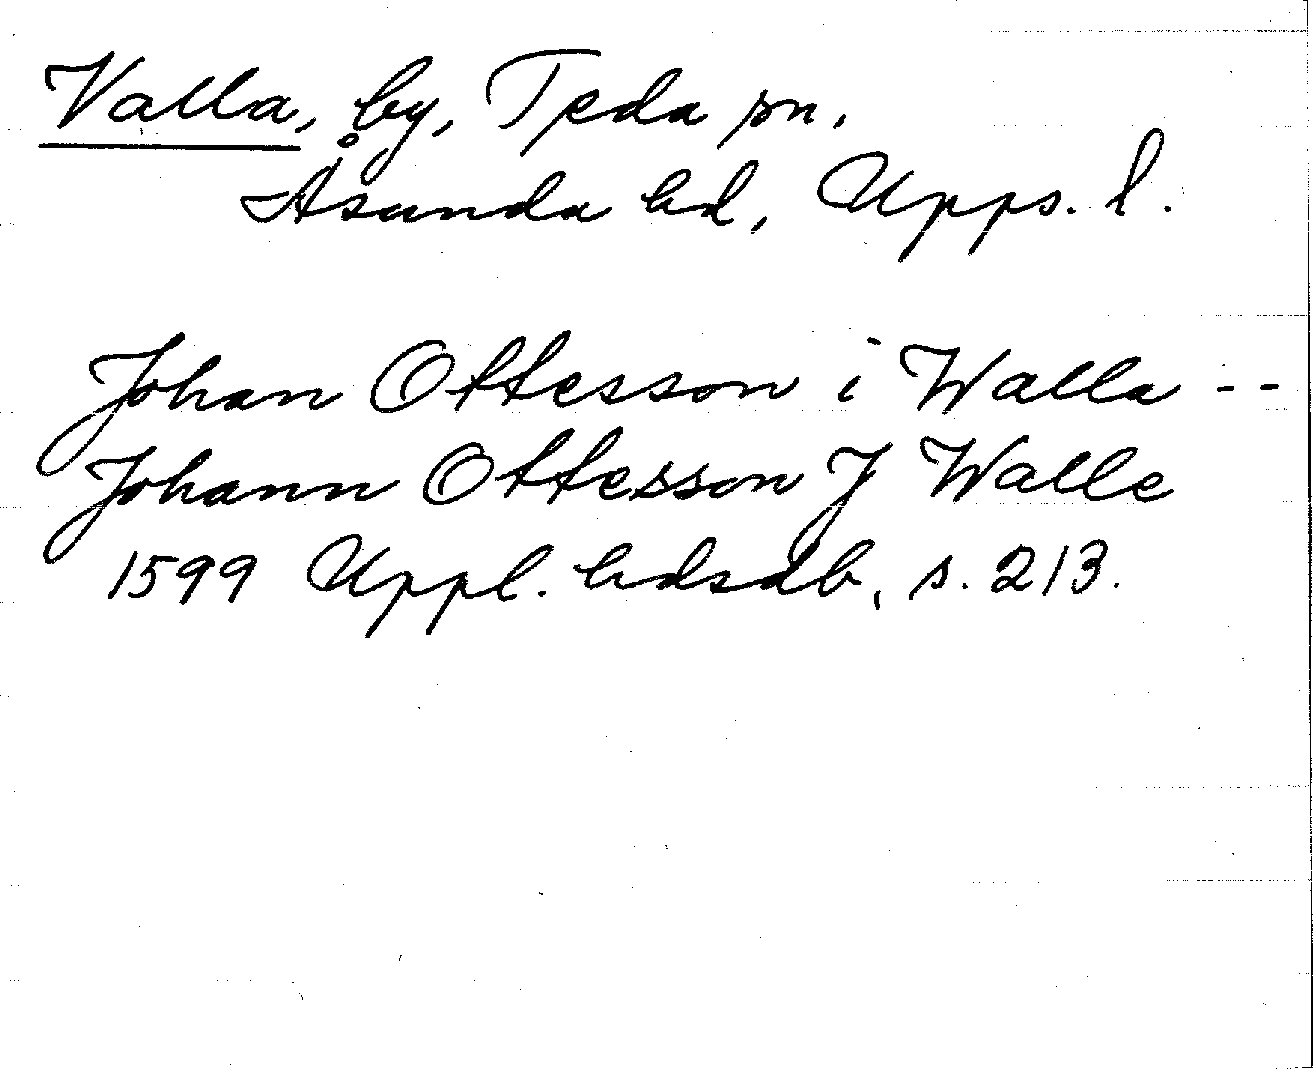 Valla, by, Teda sn.
Åsunda hd, Upps. l.
Johan Ottesson i Walla --
Johann Ottesson J Walle
1599 Uppl. hdsdb, s. 213.